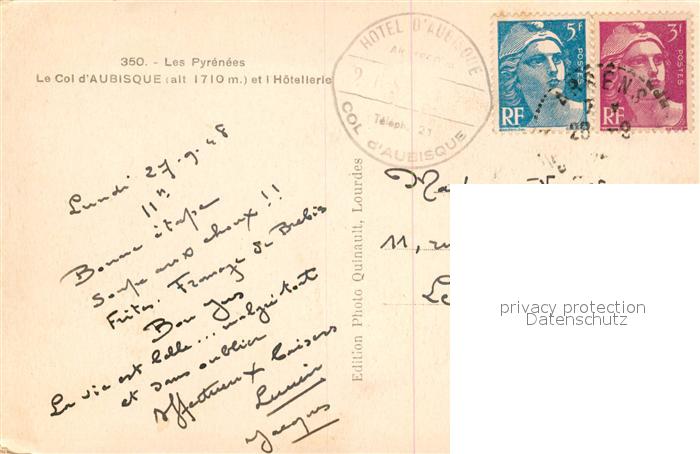 350. - Les Pyrénées
Le Col d'AUBISQUE (alt 1710 m.) et l Hôtellerie
HOTEL D'AUBISQUE
Téleph. 21
COL d'AUBISQUE
5f
POSTES
RF
3f
POSTES
RF
28 -9
Lundi 27-9-48
11h
Bonne étape
Soupe aux choux !!
Frites. Fromage de Brebis
Bon jus
La vie est belle... malgré tout
et sans oublier
affectueux baisers
Lucien
Jacques
Edition Photo Quinault, Lourdes
11, ru
Le
privacy protection
Datenschutz